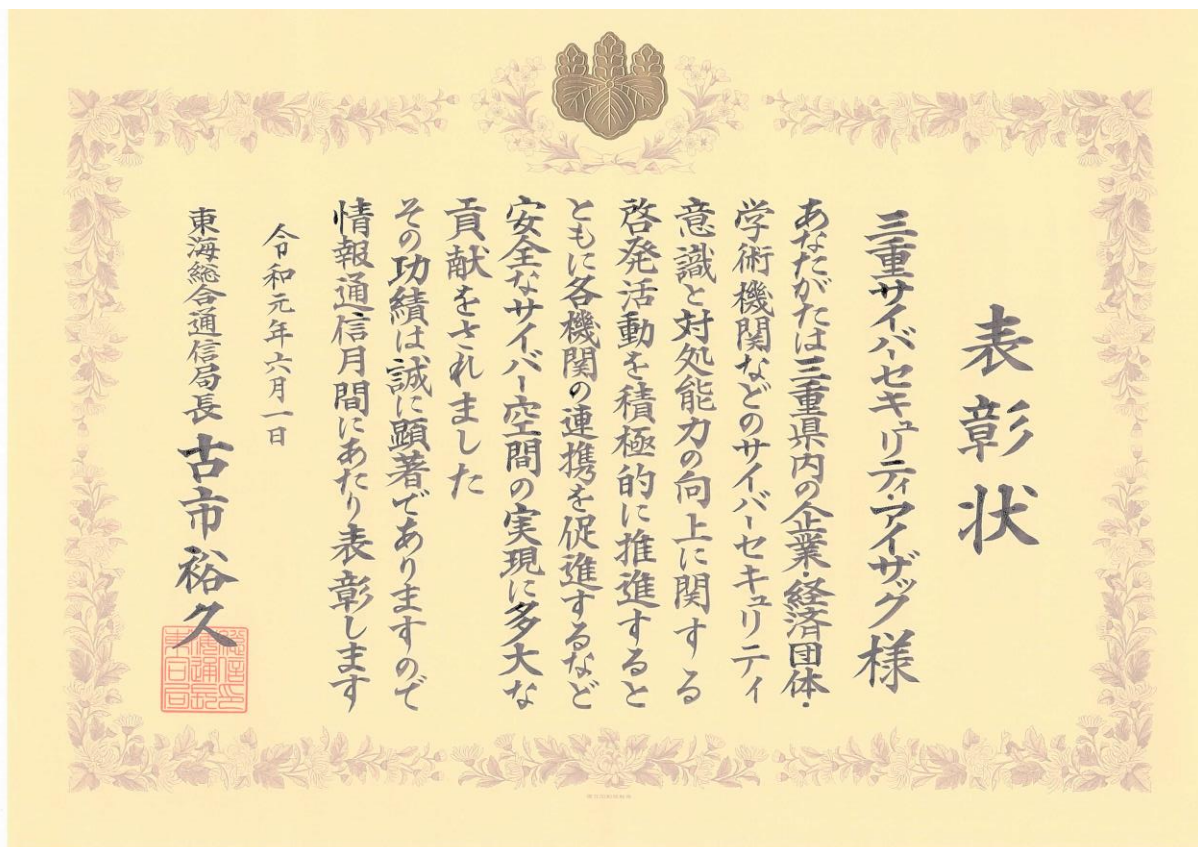 表彰状
三重サイバーセキュリティ・アイザック様
あなたがたは三重県内の企業・経済団体・
学術機関などのサイバーセキュリティ
意識と対処能力の向上に関する
啓発活動を積極的に推進すると
ともに各機関の連携を促進するなど
安全なサイバー空間の実現に多大な
貢献をされました
その功績は誠に顕著でありますので
情報通信月間にあたり表彰します
令和元年六月一日
東海総合通信局長 古市裕久